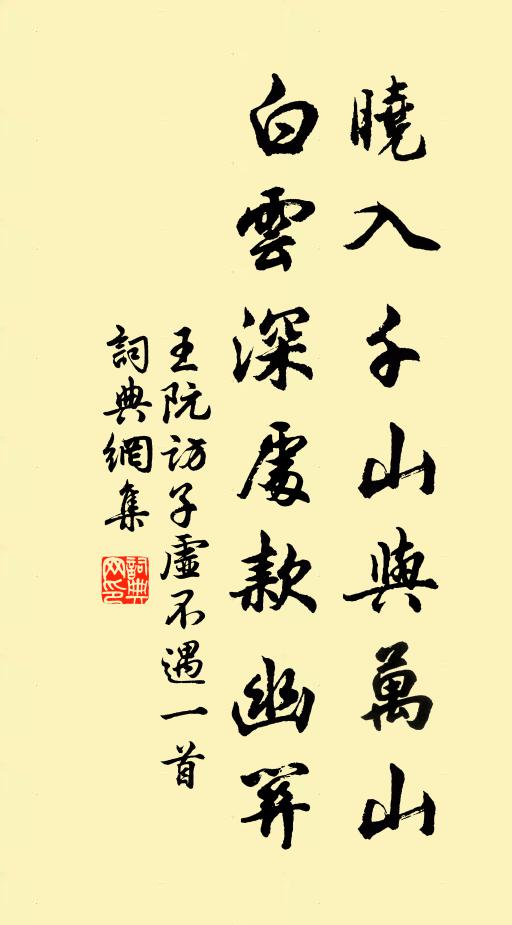 曉入千山與萬山
白雲深處款幽關
王阮訪子虛不遇一首
詞典網集
詞典網印